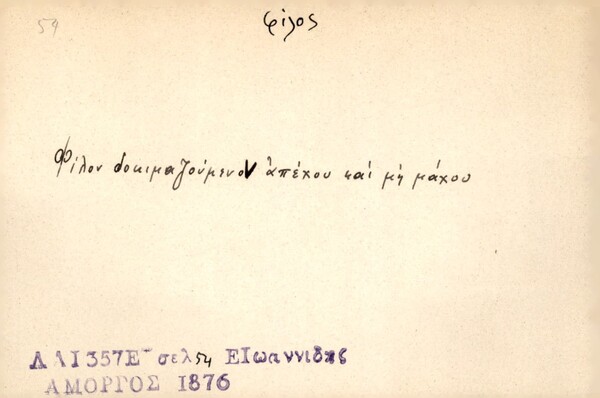 54
φίλος
Φίλον δοκιμαζούμενοΝ ἀπέχου καί μή μάχου
ΛΑ 1357Ε σελ 54 ΕΙωαννιδης
ΑΜΟΡΓΟΣ 1876